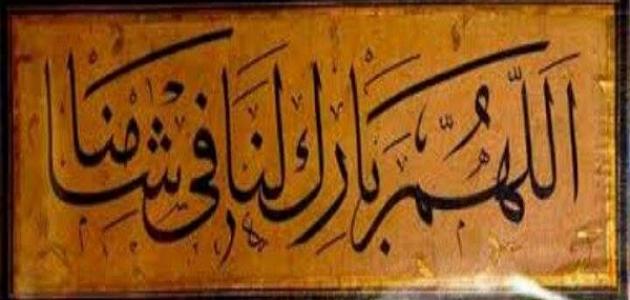 اللهم بارك لنا في شامنا